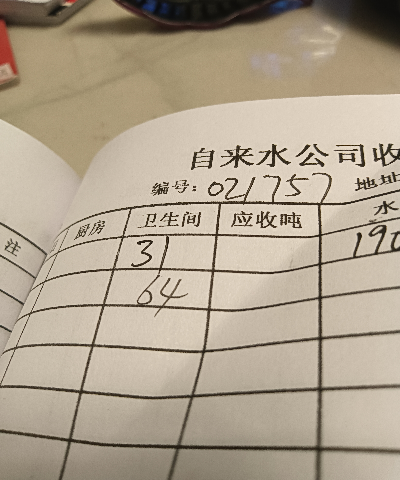 自来水公司收
编号: 021757 地址
注 厨房 卫生间 应收吨 水
31 190
64